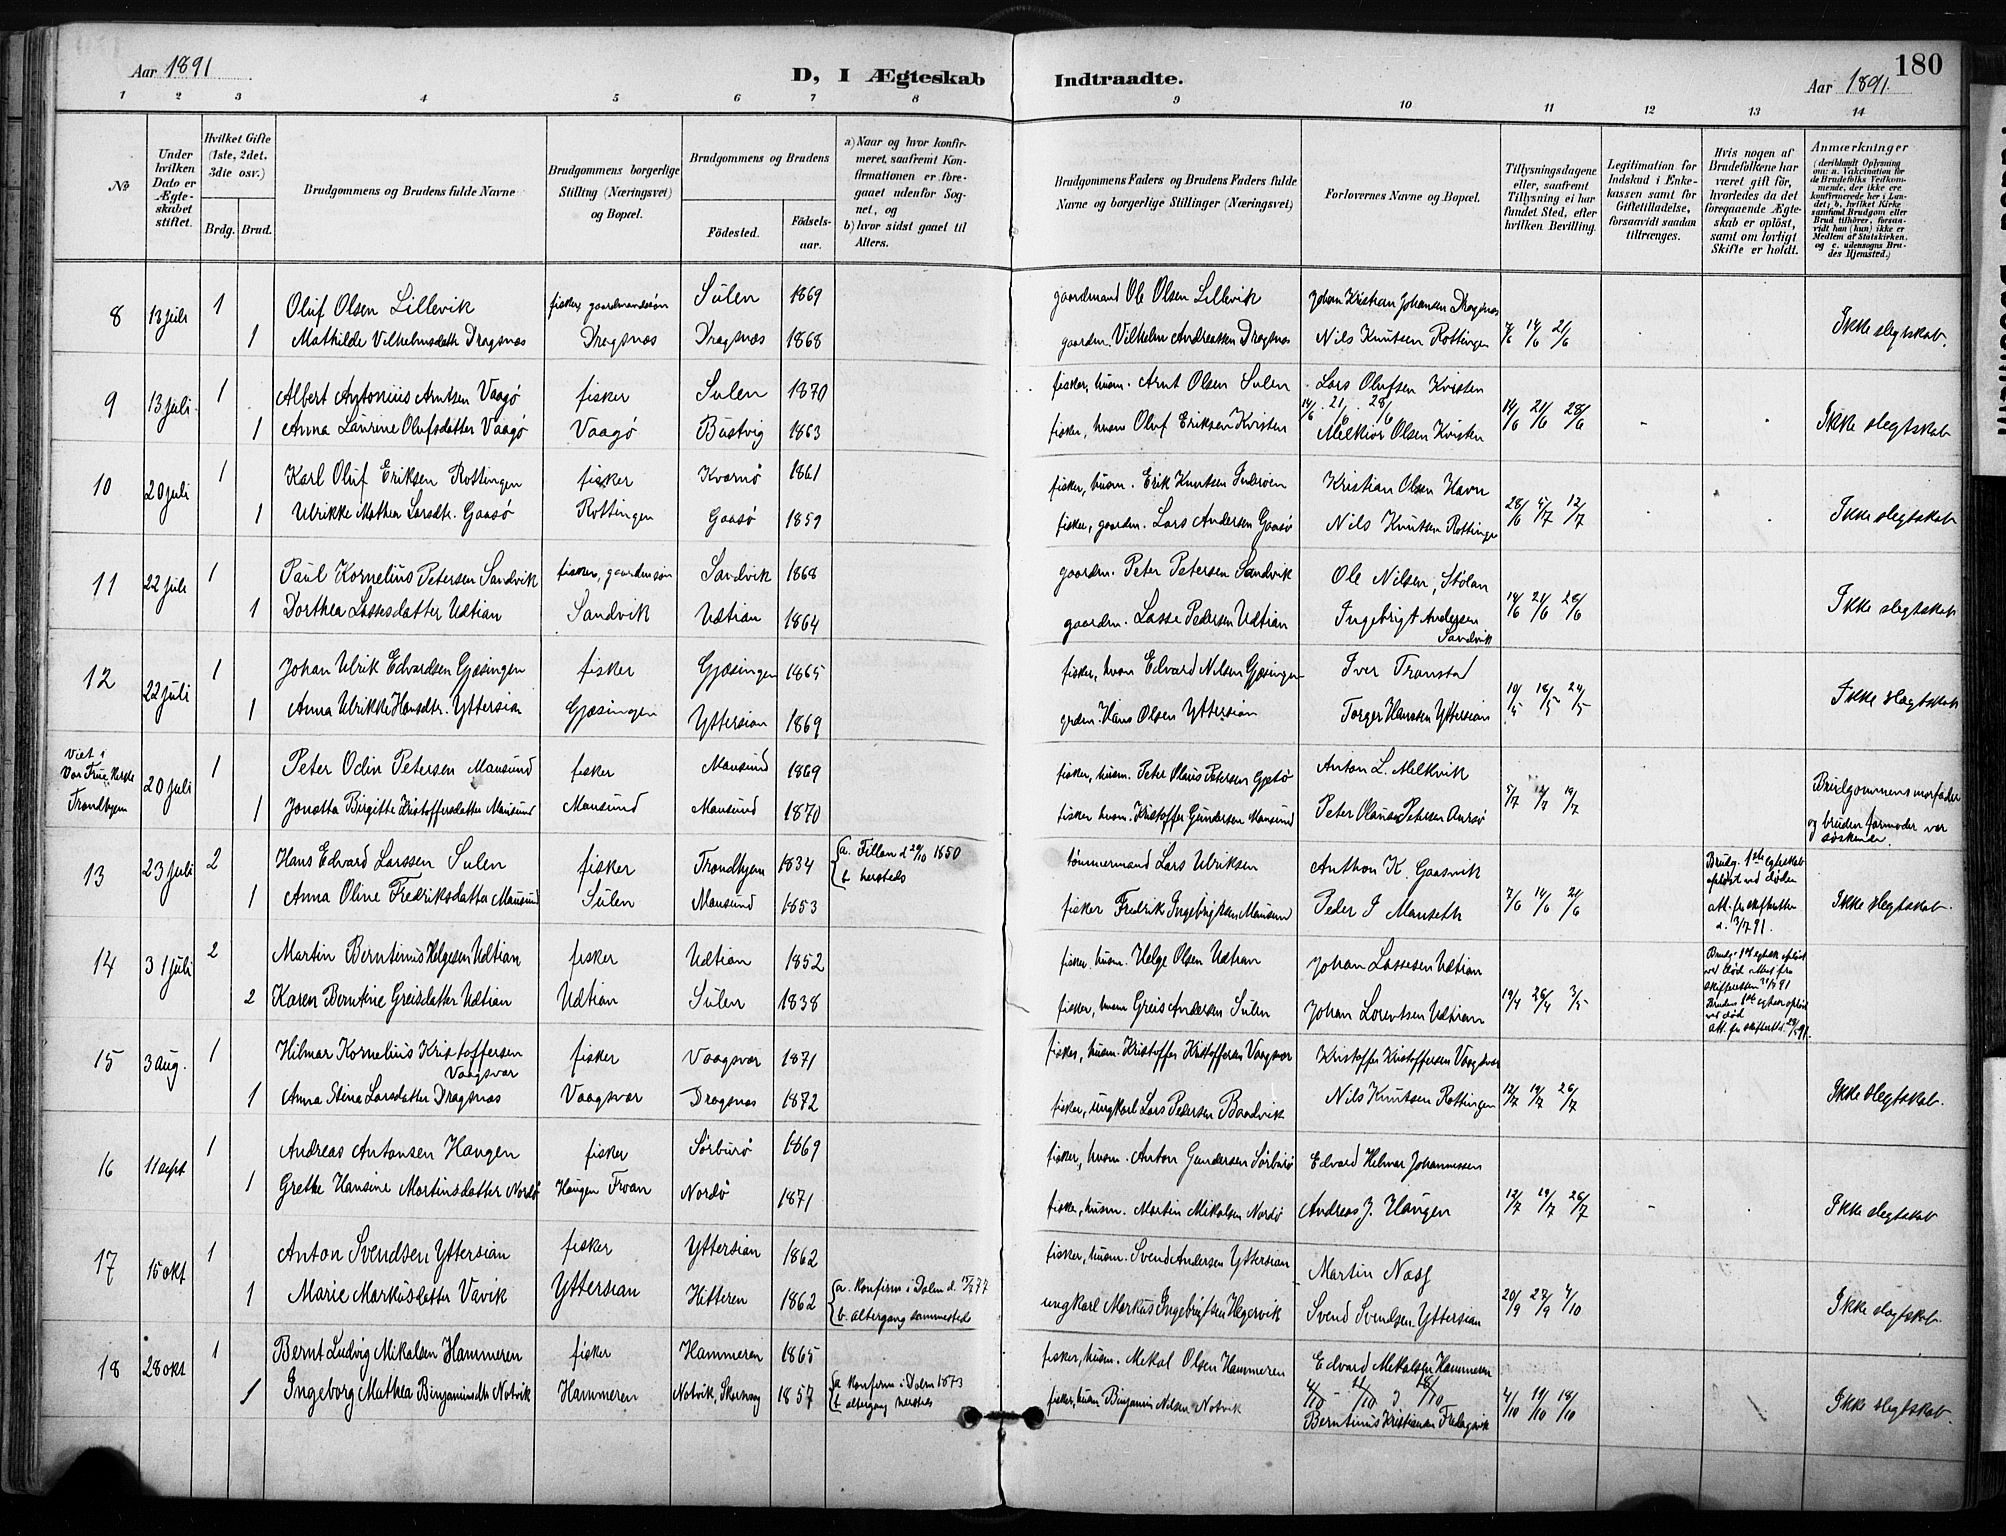 Aar 1891
D, I Ægteskab Indtraadte.
Aar 1891.
180
1 2 3 4 5 6 7 8 9 10 11 12 13 14
No
Under hvilken Dato er Ægteskabet stiftet.
Hvilket Gifte (1ste, 2det, 3die osv.)
Brdg. Brud.
Brudgommens og Brudens fulde Navne
Brudgommens borgerlige Stilling (Næringsvei) og Bopæl.
Brudgommens og Brudens
Fødested. Fødselsaar.
a) Naar og hvor konfirmeret, saafremt Konfirmationen er foregaaet udenfor Sognet, og
b) hvor sidst gaaet til Alters.
Brudgommens Faders og Brudens Faders fulde Navne og borgerlige Stillinger (Næringsvei)
Forlovernes Navne og Bopæl.
Tillysningsdagene eller, saafremt Tillysning ei har fundet Sted, efter hvilken Bevilling.
Legitimation for Indskud i Enkekassen samt for Giftetilladelse, forsaavidt saadan tiltrænges.
Hvis nogen af Brudefolkene har været gift før, hvorledes da det foregaaende Ægteskab er opløst, samt om lovligt Skifte er holdt.
Anmærkninger
(deriblandt Oplysning om: a. Vakcination for de Brudefolks Vedkommende, der ikke ere konfirmerede her i Landet; b. hvilket Kirkesamfund Brudgom eller Brud tilhører, forsaavidt han (hun) ikke er Medlem af Statskirken, og c. udensogns Brudes Hjemsted.)
8 13 juli 1 Oluf Olsen Lillevik fisker, gaardmandssøn Sulen 1869 gaardmand Ole Olsen Lillevik Johan Kristian Johansen Dragsnæs
1 Mathilde Vilhelmsdatt. Dragsnæs Dragsnæs Dragsnæs 1868 gaardm. Vilhelm Andreassen Dragsnæs Nils Knutsen Rottingen 7/6 14/6 21/6 Ikke slegtskab.
9 13 juli 1 Albert Antonius Arntsen Vaagø fisker Sulen 1870 fisker, husm. Arnt Olsen Sulen Lars Olufsen Kvisten
14/6 . 21/6 . 28/6
1 Anna Laurine Olufsdatter Vaagø Vaagø Bustvig 1863 fisker, husm Oluf Eriksen Kvisten Melkior Olsen Kvisten 14/6 21/6 28/6 Ikke slegtskab
10 20 juli 1 Karl Oluf Eriksen Rottingen fisker Kvernø 1861 fisker, husm. Erik Knutsen Inderøen Kristian Olsen Havn
1 Ulrikke Mathea Larsdtr. Gaasø Rottingen Gaasø 1859 fisker, gaardm. Lars Andersen Gaasø Nils Knutsen Rottinge 28/6 5/7 12/7 Ikke slegtskab
11 22 juli 1 Paul Kornelius Petersen Sandvik fisker, gaardm.søn Sandvik 1868 gaardm. Peter Petersen Sandvik Ole Nilsen, Stølan
1 Dorthea Lassesdatter Udtian Sandvik Udtian 1864 gaardm. Lasse Pedersen Udtian Ingebrigt Andersen Sandvik 14/6 21/6 28/6 Ikke slegtskab
12 22 juli 1 Johan Ulrik Edvardsen Gjæsingen fisker Gjæsingen 1865 fisker, husm Edvard Nilsen Gjæsingen Iver Transtad
1 Anna Ulrikke Hansdtr. Yttersian Gjæsingen Yttersian 1869 grdm. Hans Olsen Yttersian Torger Hanssen Yttersian 10/5 18/5 24/5 Ikke slegtskab
Viet i Vor Frue Kirke Trondhjem 20 juli 1 Peter Odin Petersen Mausund fisker Mausund 1869 fisker, husm. Peter Olaus Petersen Anton L. Melkvik
1 Jonetta Birgitte Kristoffersdatter Mausund Mausund Mausund 1870 fisker husm. Kristoffer Gundersen Mausund Peter Olaus Petersen 5/7 12/7 19/7 Brudgommens morfader og brudens farmoder var søskende.
13 23 juli 2 Hans Edvard Larssen Sulen fisker Trondhjem 1834 a. Fillan d 20/10 1850 b. hersteds tømmermand Lars Ulriksen Anthon K. Gaasvik Brudg. 1ste egteskab opløst ved døden
1 Anna Oline Fredriksdatter Mausund Sulen Mausund 1853 fisker Fredrik Ingebrigtsen Mausund Peder J Manseth 7/6 14/6 21/6 att. fr skifteretten d. 3/7 91. Ikke slegtskab.
14 31 juli 2 Martin Berntinus Helgesen Udtian fisker Udtian 1852 fisker, husm. Helge Olsen Udtian Johan Lassesen Udtian
2 Karen Berntine Greisdatter Udtian Udtian Sulen 1838 fisker, husm Greis Andersen Sulen Johan Lorentsen Udtian 19/4 26/4 3/5
15 3 aug. 1 Hilmar Kornelius Kristoffersen Vaagsvær fisker Vaagsvær 1871 fisker, husm. Kristoffer Kristoffersen Vaagsvær Kristoffer Kristoffersen Vaagsvær
1 Anna Stina Larsdatter Dragsnæs Vaagsvær Dragsnæs 1872 fisker, ungkarl Lars Pedersen Baadvik Nils Knutsen Rottingen 12/7 19/7 26/7 Ikke slegtskab.
16 11 sept 1 Andreas Antonsen Haugen fisker Sørburø 1869 fisker, husm. Anton Gundersen Sørburø Edvard Hilmar Johannessen
1 Grethe Hansine Martinsdatter Nordø Haugen Froan Nordø 1871 fisker, husm. Martin Mikalsen Nordø Andreas J. Haugen 12/7 19/7 26/7 Ikke slegtskab
17 15 okt 1 Anton Svendsen Yttersian fisker Yttersian 1862 fisker, husm. Svend Andersen Yttersian Martin Næss
1 Marie Markusdatter Vavik Yttersian Hitteren 1862 a. konfirm i Dolm d. 77 b. altergang sammested ungkarl Markus Ingebrigtsen Hegervik Svend Svendsen Yttersian 20/9 27/9 4/10 Ikke slegtskab.
18 28 okt 1 Bernt Ludvig Mikalsen Hammeren fisker Hammeren 1865 fisker, husm. Mikal Olsen Hammeren Edvard Mikalsen Hammeren
4/10 - 11/10 18/10
1 Ingeborg Mathea Binjaminsdtr Notvik Hammeren Notvik, 1857 a konfirm i Dolm 1873 b altergang hersteds fisker, husm Binjamin Nilsen Notvik Berntinus Kristiansen 4/10 11/10 18/10 Ikke slegtskab.